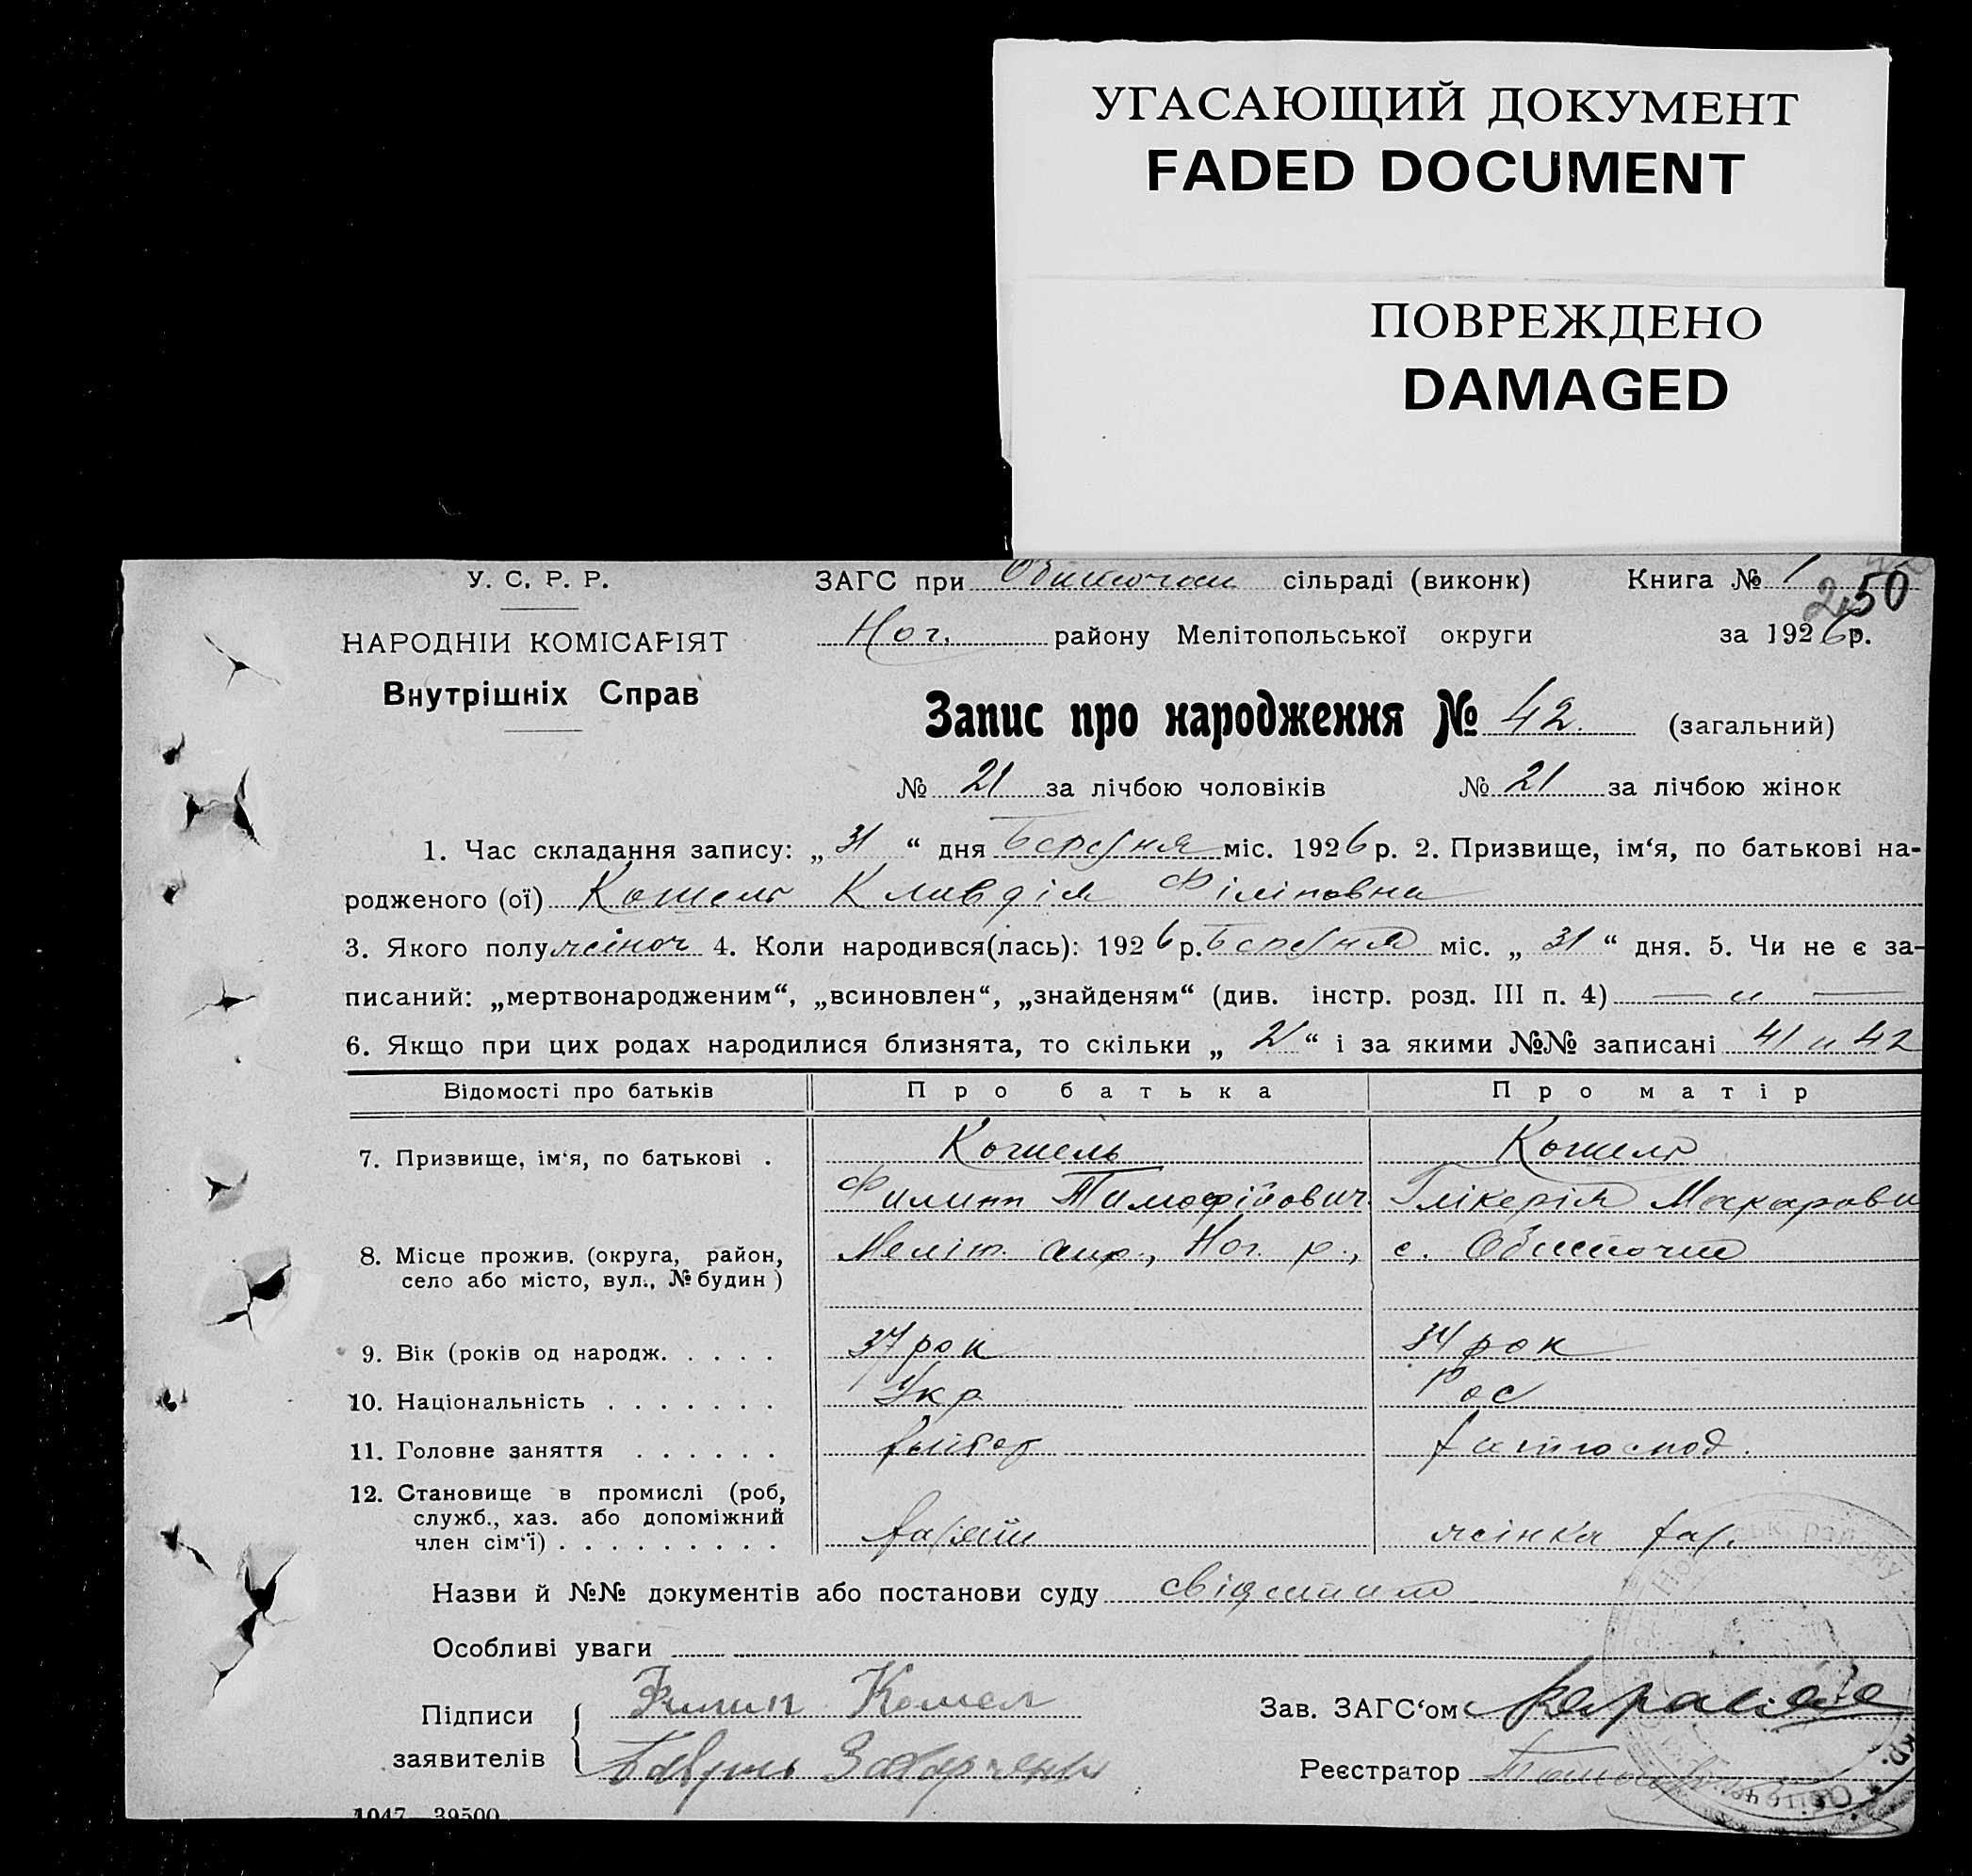 УГАСАЮЩИЙ ДОКУМЕНТ
FADED DOCUMENT
ПОВРЕЖДЕНО
DAMAGED
У. С. Р. Р.
НАРОДНІЙ КОМІСАРІЯТ
Внутрішніх Справ
ЗАГС при сільраді (виконк) Книга № 1
250
Ног. району Мелітопольської округи за 1926 р.
Запис про народження № 42. (загальний)
№ 21 за лічбою чоловіків № 21 за лічбою жінок
1. Час складання запису: „31“ дня Березня міс. 1926 р. 2. Призвище, ім‘я, по батькові на-
родженого (ої) Кошель Клавдія Філіповна
3. Якого полу жіноч 4. Коли народився(лась): 1926 р. Березня міс. „31“ дня. 5. Чи не є за-
писаний: „мертвонародженим“, „всиновлен“, „знайденям“ (див. інстр. розд. III п. 4) — „ —
6. Якщо при цих родах народилися близнята, то скільки „2“ і за якими №№ записані 41 и 42
Відомості про батьків Про батька Про матір
7. Призвище, ім‘я, по батькові . Кошель Кошель
Филип Тимофійович Глікерія Макарови
8. Місце прожив. (округа, район, Меліт. окр., Ног. р., с. Обиточне
село або місто, вул., № будин )
9. Вік (років од народж. . . . . 37 рок 34 рок
10. Національність . . . . . . . Укр Рос
11. Головне заняття . . . . . .
12. Становище в промислі (роб,
служб., хаз. або допоміжний
член сім‘ї) . . . . . . . . . хазяїн жінка хаз.
Назви й №№ документів або постанови суду
Особливі уваги
Підписи Филип Кошел Зав. ЗАГС‘ом
заявителів Реєстратор
1047—39500